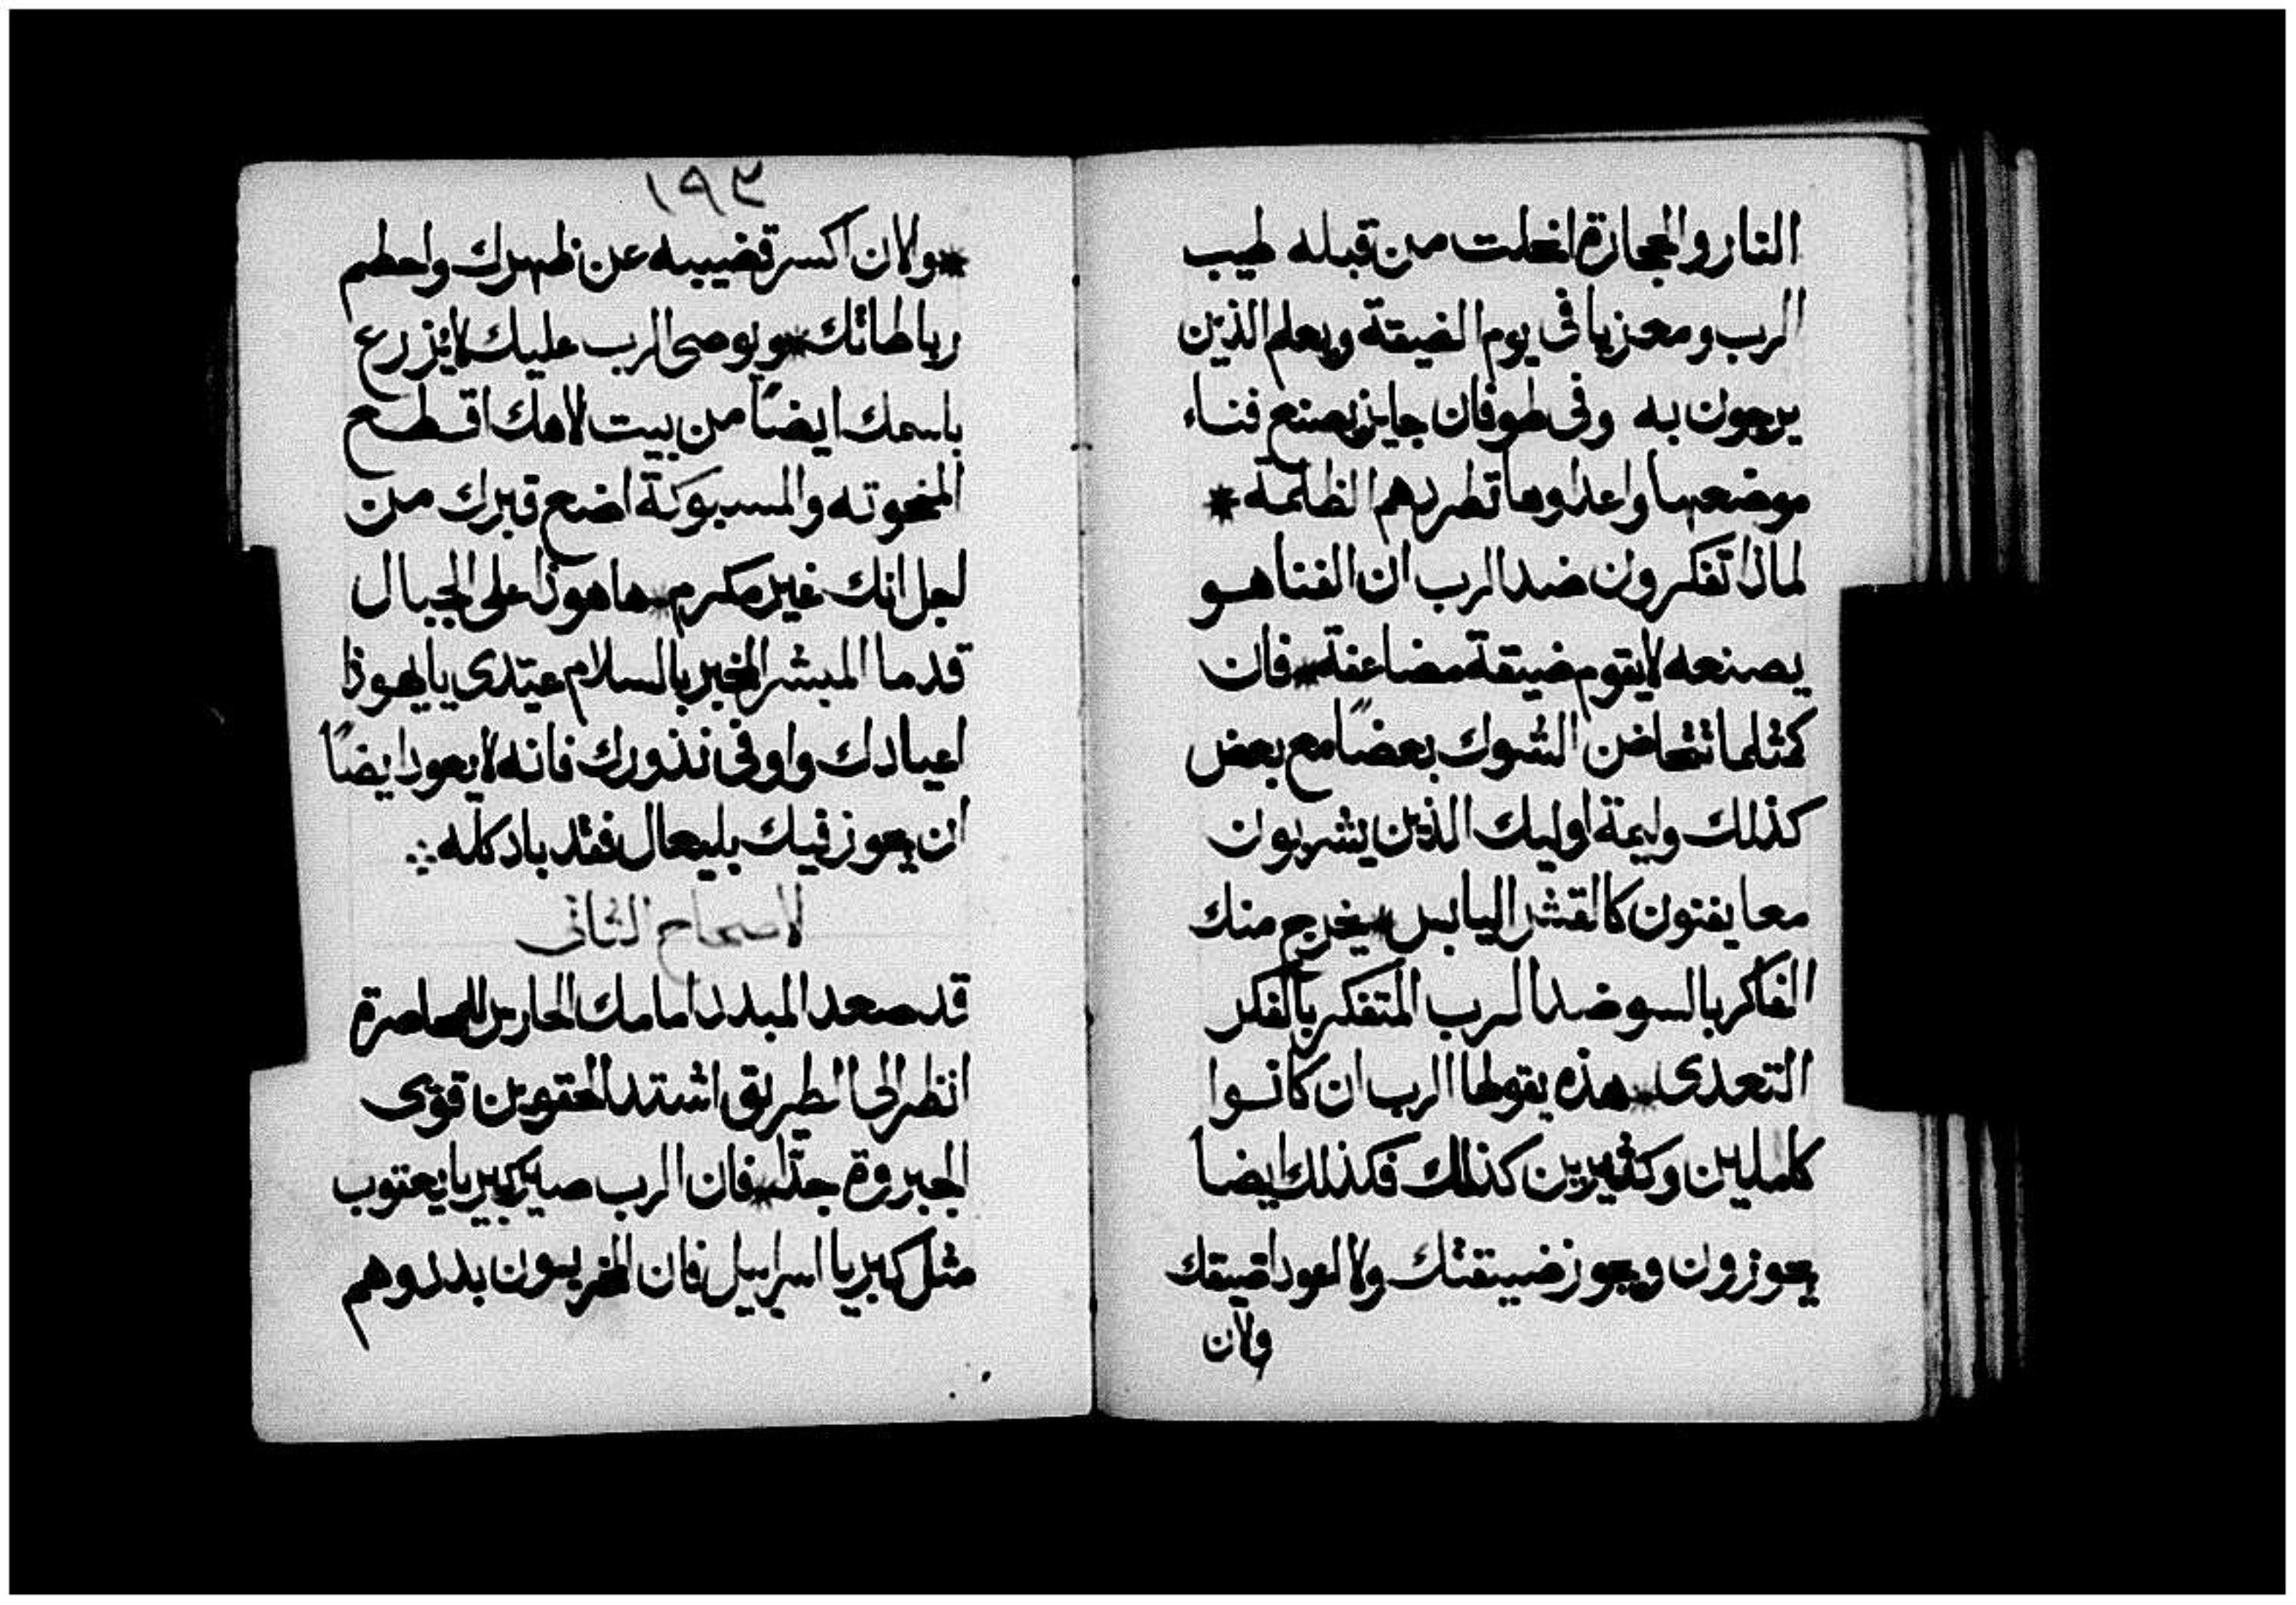 النار والحجارة انحلت من قبله طيب
الرب ومعزيا فى يوم الضيقة ويعلم الذين
يرجون به وفى طوفان جايز يصنع فناء
موضعها واعداوها تطردهم الظلمة *
لماذا تفكرون ضد الرب ان الفنا هو
يصنعه لا يقوم ضيقة مضاعفة * فان
كمثلما تتحاضن الشوك بعضًا مع بعض
كذلك وليمة اوليك الذين يشربون
معا يفنون كالقشر اليابس * يخرج منك
الفاكر بالسو ضد الرب المتفكر بالفكر
التعدى * هذه يقولها الرب ان كانوا
كاملين وكثيرين كذلك فكذلك ايضا
يجوزون ويجوز ضيقتك ولا اعود اضيقك
ولان
١٩٣
* ولان اكسر قضيبه عن ظهرك واحطم
رباطاتك * ويوصى الرب عليك لا يزرع
باسمك ايضًا من بيت لاهك اقطع
المنحوته والمسبوكة اضع قبرك من
اجل انك غير مكرم * ها هوذا على الجبال
قدما المبشر المخبر بالسلام عيّدى يا يهوذا
اعيادك واوفى نذورك فانه لا يعود ايضًا
ان يجوز فيك بليعال فقد باد كله ∴
الاصحاح الثانى
قد صعد المبدد امامك الحارس المحاصرة
انظر الى الطريق اشتد الحقوين قوّى
الجبروة جدًا * فان الرب صير كبريا يعقوب
مثل كبريا اسراييل فان المخربون بددوهم